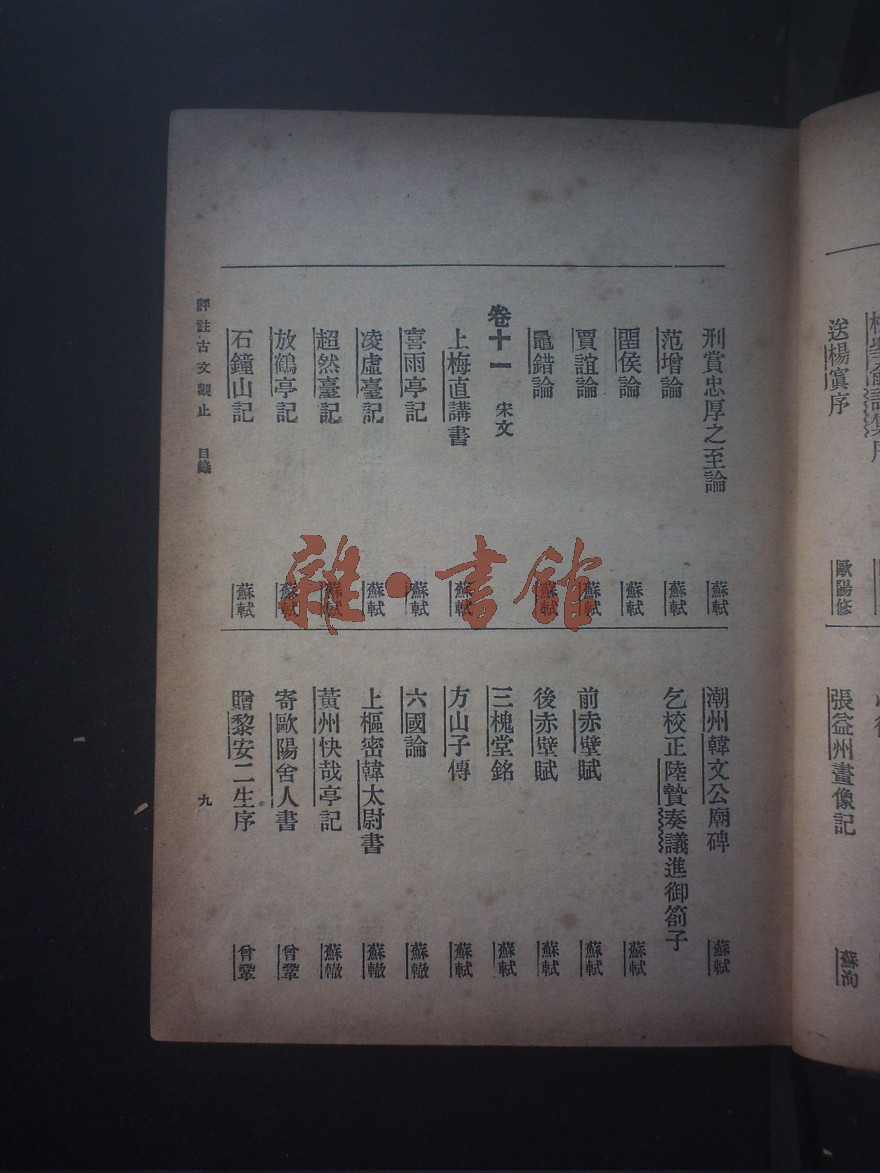 送楊寘序 歐陽修
張益州畫像記 蘇洵
刑賞忠厚之至論 蘇軾
范增論 蘇軾
畱侯論 蘇軾
賈誼論 蘇軾
鼂錯論 蘇軾
卷十一 宋文
上梅直講書 蘇軾
喜雨亭記 蘇軾
凌虛臺記 蘇軾
超然臺記 蘇軾
放鶴亭記 蘇軾
石鐘山記 蘇軾
潮州韓文公廟碑 蘇軾
乞校正陸贄奏議進御箚子 蘇軾
前赤壁賦 蘇軾
後赤壁賦 蘇軾
三槐堂銘 蘇軾
方山子傳 蘇軾
六國論 蘇轍
上樞密韓太尉書 蘇轍
黃州快哉亭記 蘇轍
寄歐陽舍人書 曾鞏
贈黎安二生序 曾鞏
評註古文觀止 目錄 九
雜·書館